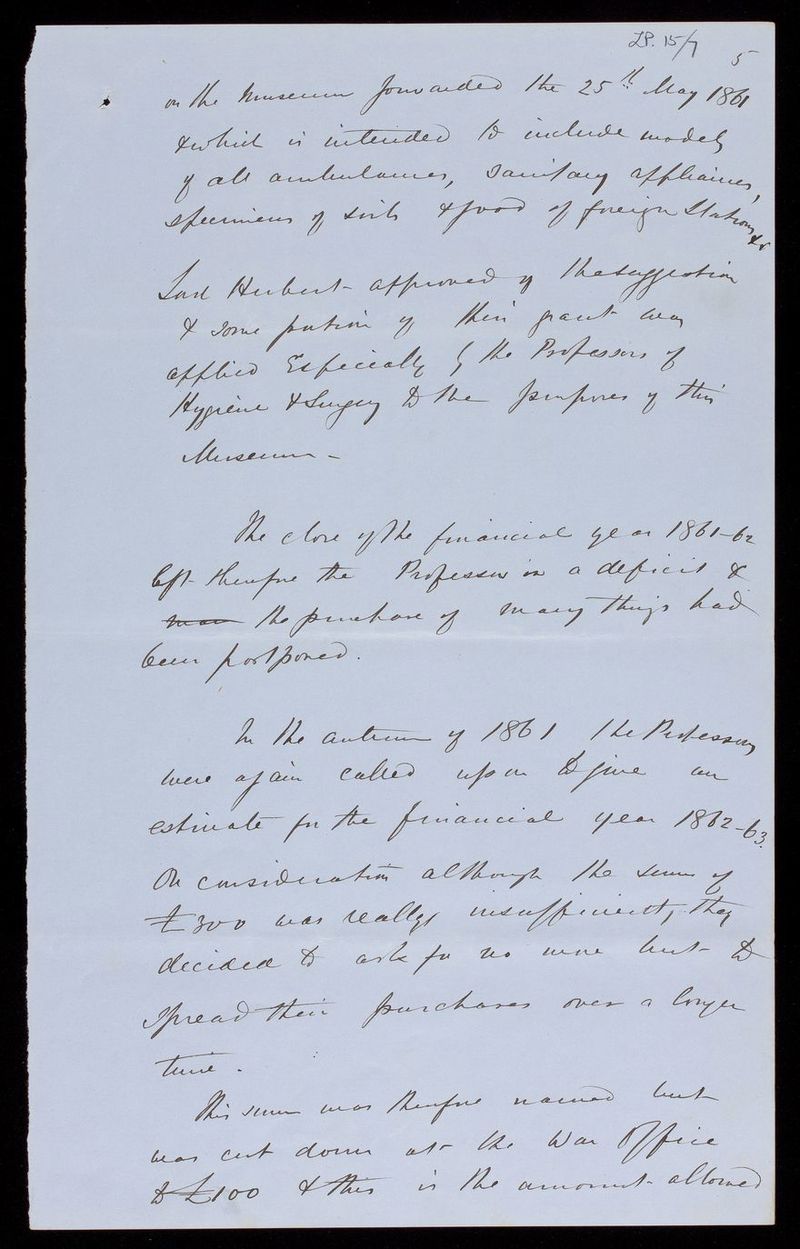 LP. 15/7 5
on the Museum forwarded the 25th May 1861
& which is intended to include models
of all ambulances, sanitary appliances,
specimens of soils & food of foreign Stations &c
Lord Herbert approved of the suggestion
& some portion of this grant was
applied Especially by the Professors of
Hygiene & Surgery to the purposes of this
Museum -
The close of the financial year 1861-62
left therefore the Professors in a deficit &
man the purchase of many things had
been postponed.
In the autumn of 1861 the Professors
were again called upon to give an
estimate for the financial year 1862-63.
On consideration although the sum of
£300 was really insufficient, they
decided to ask for no more but to
spread their purchases over a longer
time.
This sum was therefore named but
was cut down at the War Office
to £100 & this is the amount allowed